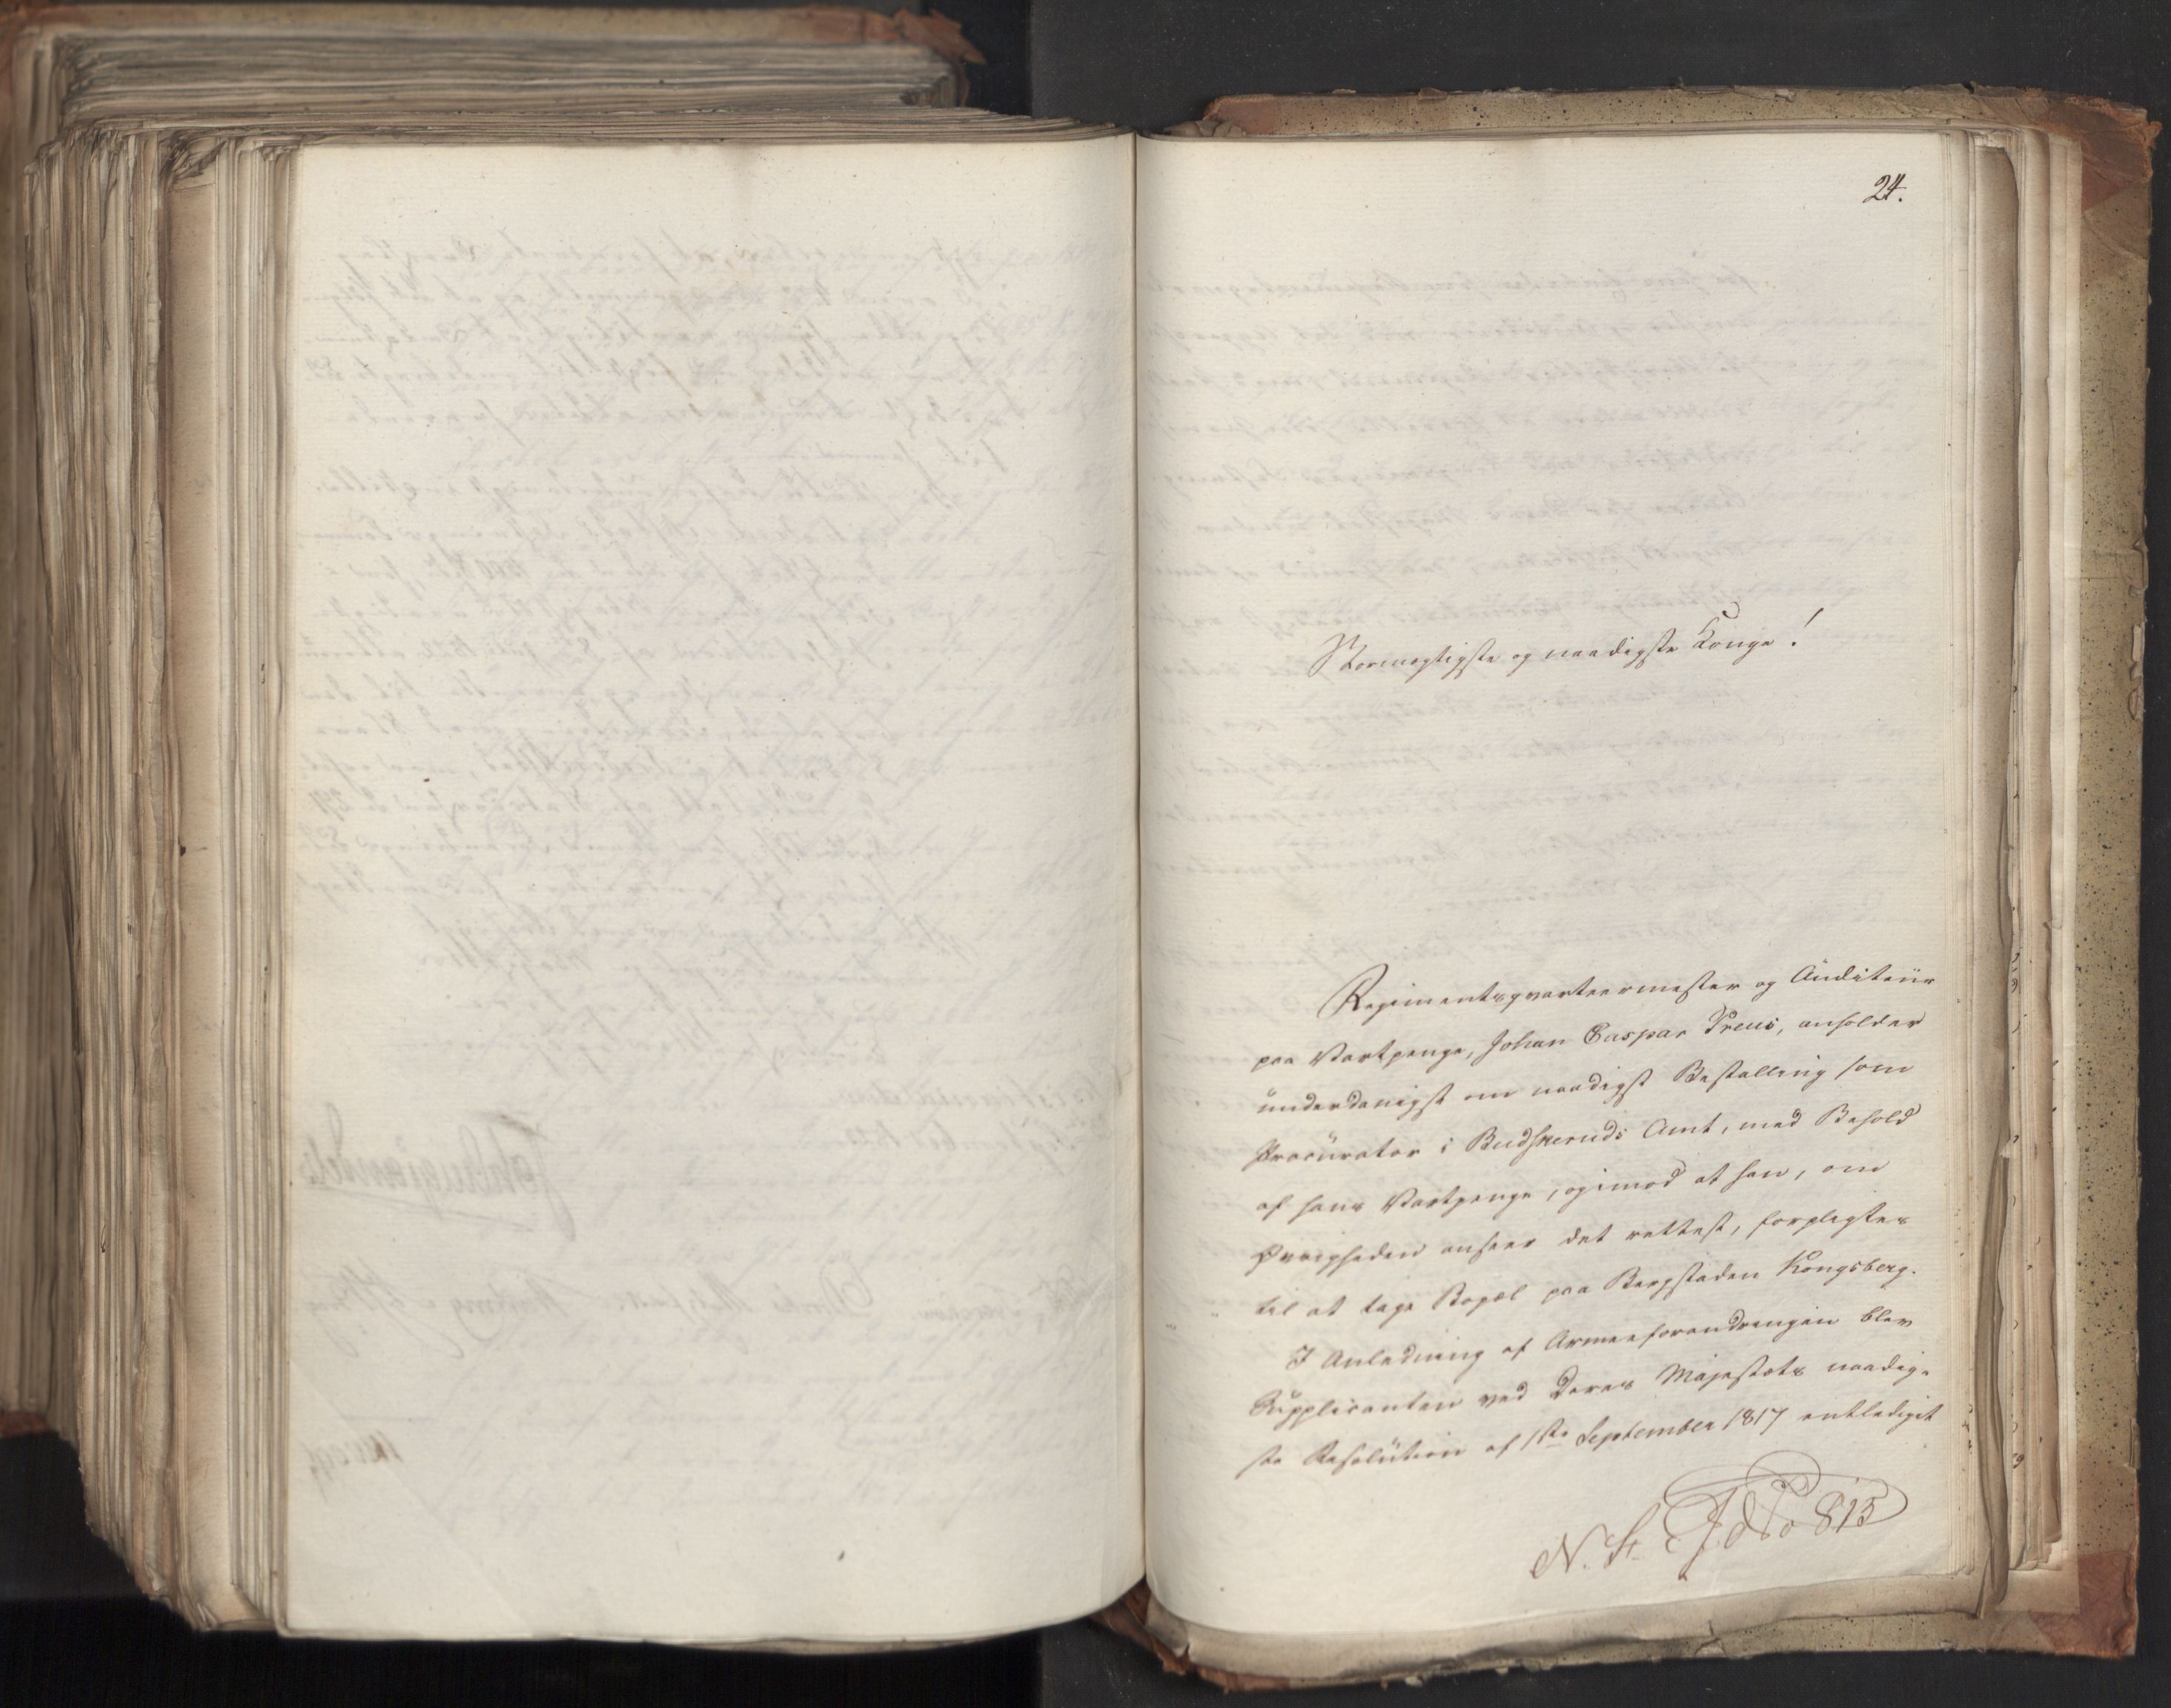 24.
Stormægtigste og naadigste Konge!
Regimentsqvarteermester og Auditeur
paa Vartpenge, Johan Caspar Preus, anholder
underdanigst om naadigst Bestalling som
Procurator i Budskeruds Amt, med Behold
af hans Vartpenge, ogimod at han, om
Øvrigheden anseer det rettest, forpligtes
til at tage Bopæl paa Bergstaden Kongsberg.
I Anledning af Armeeforandringen blev
Supplicanten ved Deres Majestæts naadig-
ste Resolution af 1ste September 1817 entlediget